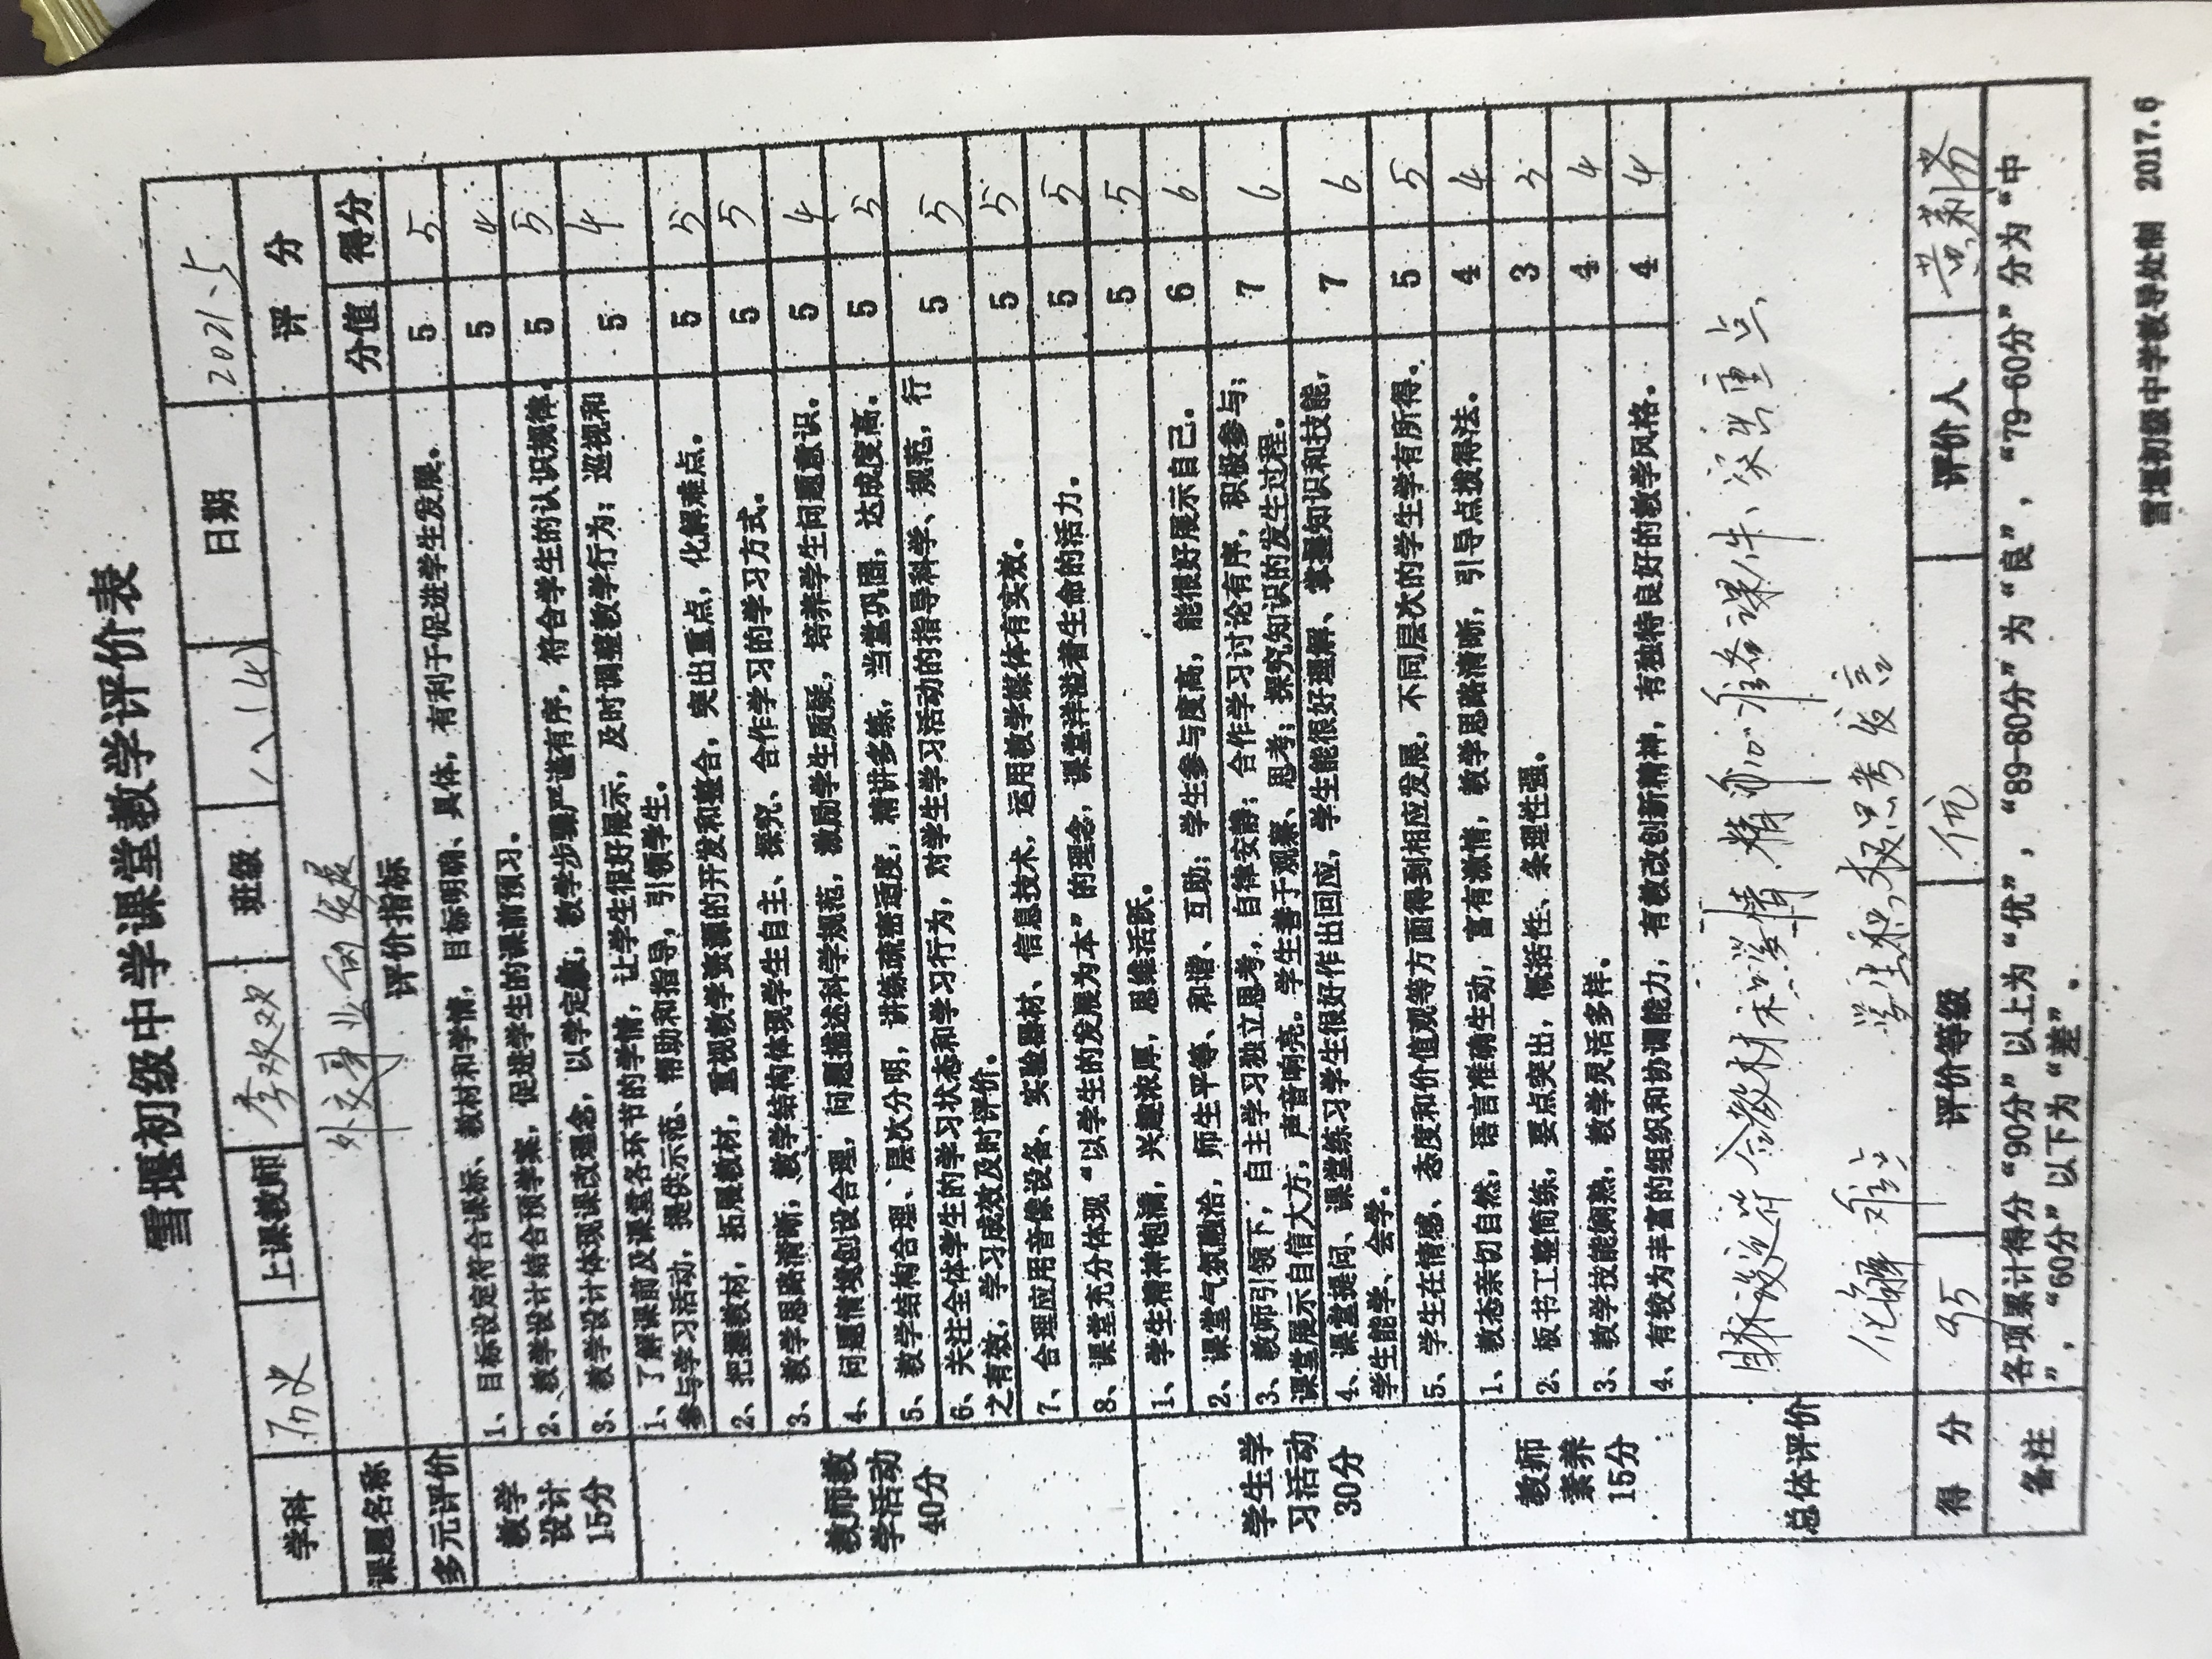 雪堰初级中学课堂教学评价表
学科 历史 上课教师 李双双 班级 八(4) 日期 2021.5
课题名称 外交事业的发展 评 分
多元评价 评价指标 分值 得分
教学设计 15分
1、目标设定符合课标、教材和学情，目标明确、具体，有利于促进学生发展。 5 5
2、教学设计结合预学案，促进学生的课前预习。 5 4
3、教学设计体现课改理念，以学定教；教学步骤严谨有序，符合学生的认识规律。 5 5
教师教学活动 40分
1、了解课前及课堂各环节的学情，让学生很好展示，及时调整教学行为；巡视和
参与学习活动，提供示范、帮助和指导，引领学生。 5 4
2、把握教材，拓展教材，重视教学资源的开发和整合，突出重点，化解难点。 5 5
3、教学思路清晰；教学结构体现学生自主、探究、合作学习的学习方式。 5 5
4、问题情境创设合理，问题描述科学规范，激励学生质疑，培养学生问题意识。 5 4
5、教学结构合理、层次分明，讲练疏密适度，精讲多练，当堂巩固，达成度高。 5 5
6、关注全体学生的学习状态和学习行为，对学生学习活动的指导科学、规范，行
之有效，学习成效及时评价。 5 5
7、合理应用音像设备、实验器材、信息技术，运用教学媒体有实效。 5 5
8、课堂充分体现“以学生的发展为本”的理念，课堂洋溢着生命的活力。 5 5
学生学习活动 30分
1、学生精神饱满，兴趣浓厚，思维活跃。 5 5
2、课堂气氛融洽，师生平等、和谐、互助；学生参与度高，能很好展示自己。 6 6
3、教师引领下，自主学习独立思考，自律安静；合作学习讨论有序，积极参与；
课堂展示自信大方，声音响亮。学生善于观察、思考；探究知识的发生过程。 7 6
4、课堂提问、课堂练习学生很好作出回应，学生能很好理解、掌握知识和技能，
学生能学、会学。 7 6
5、学生在情感、态度和价值观等方面得到相应发展，不同层次的学生学有所得。 5 5
教师素养 15分
1、教态亲切自然，语言准确生动，富有激情，教学思路清晰，引导点拨得法。 4 4
2、板书工整简练，要点突出，概括性、条理性强。 3 3
3、教学技能娴熟，教学灵活多样。 4 4
4、有较为丰富的组织和协调能力，有教改创新精神，有独特良好的教学风格。 4 4
总体评价 目标设定符合教材和学情.精心准备课件、突出重点
化解难点 学生积极思考发言
得 分 95 评价等级 优 评价人
备注 各项累计得分“90分”以上为“优”，“89-80分”为“良”，“79-60分”分为“中
”，“60分”以下为“差”。
雪堰初级中学教导处制 2017.6